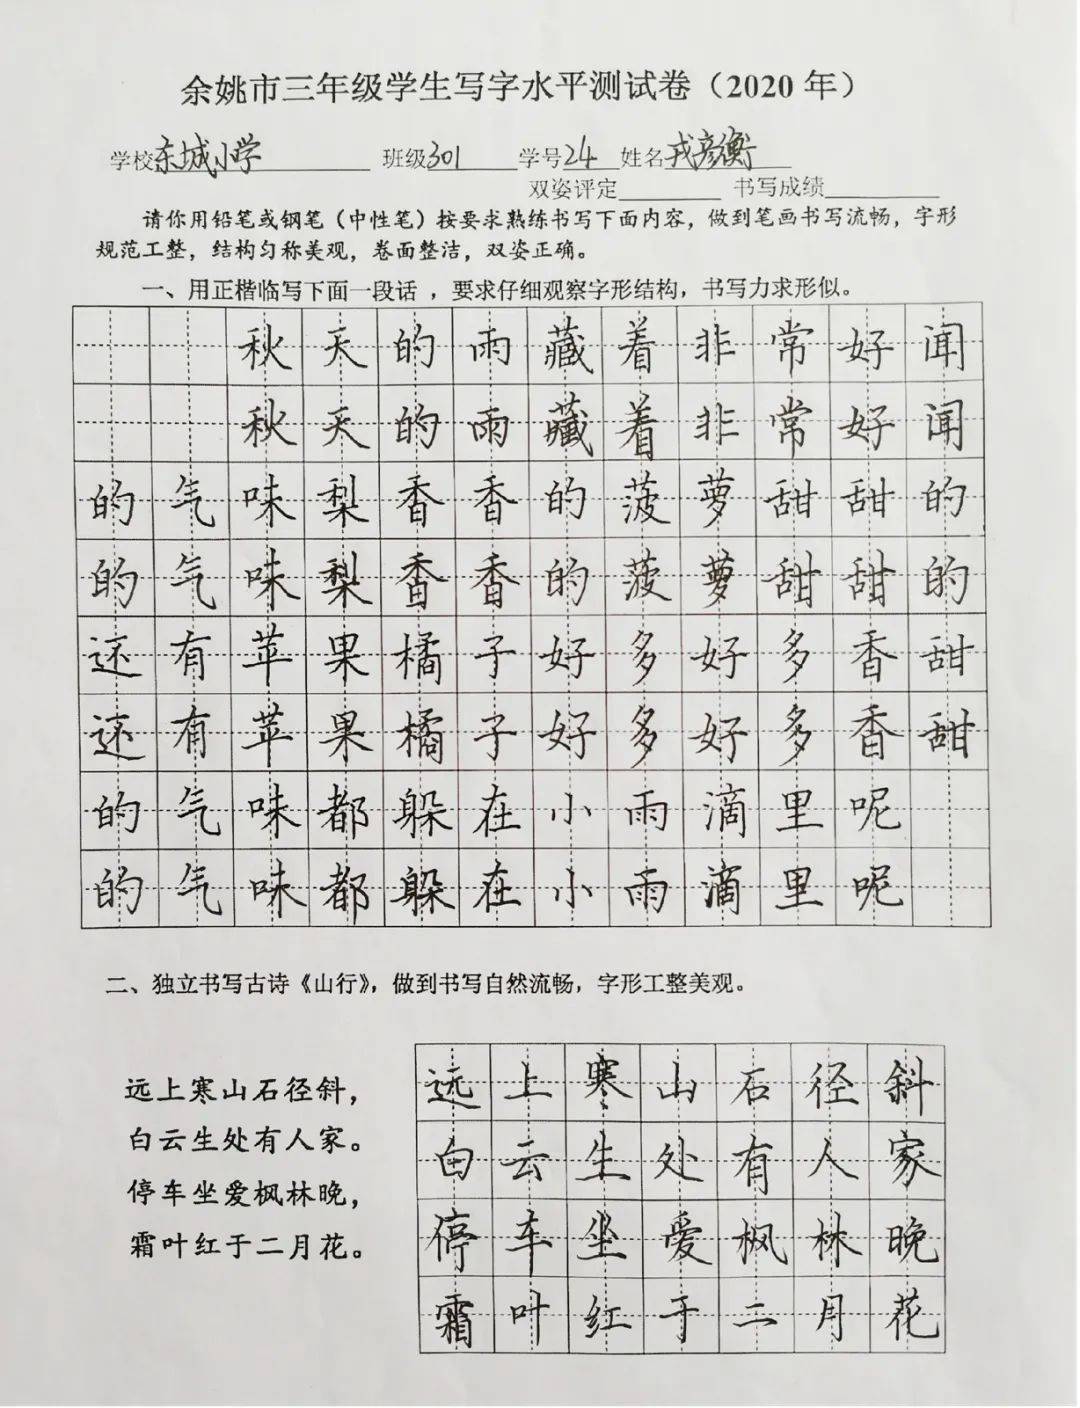 余姚市三年级学生写字水平测试卷（2020 年）
学校东城小学 班级301 学号24 姓名戎彦衡
双姿评定 书写成绩
请你用铅笔或钢笔（中性笔）按要求熟练书写下面内容，做到笔画书写流畅，字形
规范工整，结构匀称美观，卷面整洁，双姿正确。
一、用正楷临写下面一段话 ，要求仔细观察字形结构，书写力求形似。
秋天的雨藏着非常好闻
秋天的雨藏着非常好闻
的气味梨香香的菠萝甜甜的
的气味梨香香的菠萝甜甜的
还有苹果橘子好多好多香甜
还有苹果橘子好多好多香甜
的气味都躲在小雨滴里呢
的气味都躲在小雨滴里呢
二、独立书写古诗《山行》，做到书写自然流畅，字形工整美观。
远上寒山石径斜，
白云生处有人家。
停车坐爱枫林晚，
霜叶红于二月花。
远上寒山石径斜
白云生处有人家
停车坐爱枫林晚
霜叶红于二月花